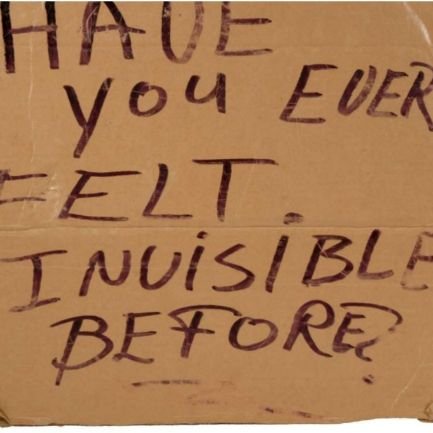 HAVE
you EVER
FELT.
INViSIBLE
BEFORE?